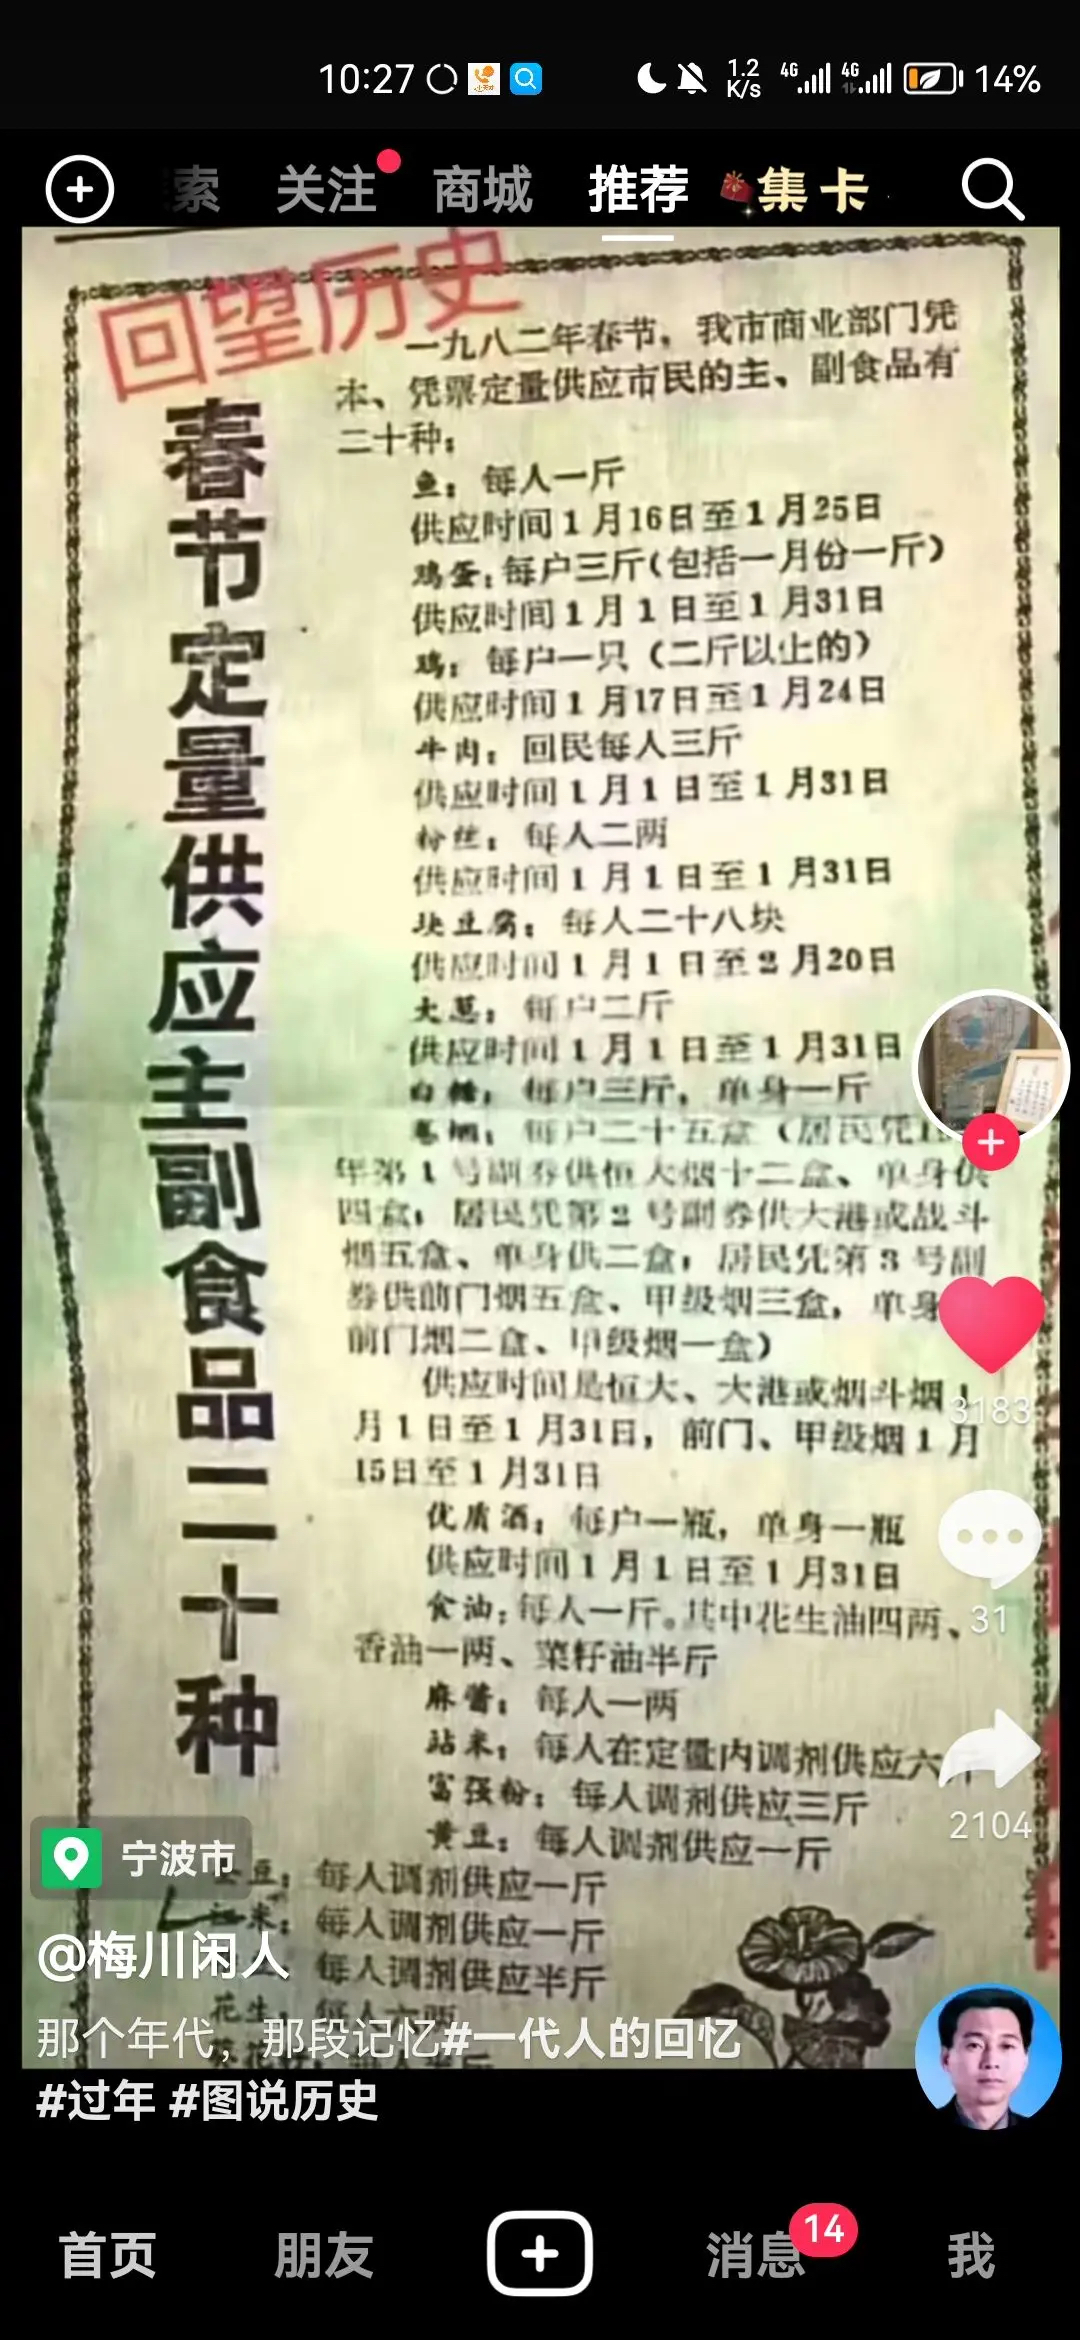 10:27
1.2
K/s
4G
4G
14%
索
关注
商城
推荐
集卡
回望历史
春节定量供应主副食品二十种
一九八二年春节，我市商业部门凭
本、凭票定量供应市民的主、副食品有
二十种：
鱼：每人一斤
供应时间1月16日至1月25日
鸡蛋：每户三斤（包括一月份一斤）
供应时间1月1日至1月31日
鸡：每户一只（二斤以上的）
供应时间1月17日至1月24日
牛肉：回民每人三斤
供应时间1月1日至1月31日
粉丝：每人二两
供应时间1月1日至1月31日
块豆腐：每人二十八块
供应时间1月1日至2月20日
大葱：每户二斤
供应时间1月1日至1月31日
白糖：每户三斤，单身一斤
卷烟：每户二十五盒（居民凭
年第1号副券供恒大烟十二盒、单身供
四盒；居民凭第2号副券供大港或战斗
烟五盒、单身供二盒；居民凭第3号副
券供前门烟五盒、甲级烟三盒，单身
前门烟二盒、甲级烟一盒）
供应时间是恒大、大港或烟斗烟1
月1日至1月31日，前门、甲级烟1月
15日至1月31日
优质酒：每户一瓶，单身一瓶
供应时间1月1日至1月31日
食油：每人一斤。其中花生油四两、
香油一两、菜籽油半斤
麻酱：每人一两
站米：每人在定量内调剂供应六
富强粉：每人调剂供应三斤
黄豆：每人调剂供应一斤
豆：每人调剂供应一斤
米：每人调剂供应一斤
每人调剂供应半斤
花生：每人
3183
31
2104
宁波市
@梅川闲人
那个年代，那段记忆#一代人的回忆
#过年 #图说历史
首页
朋友
消息
14
我